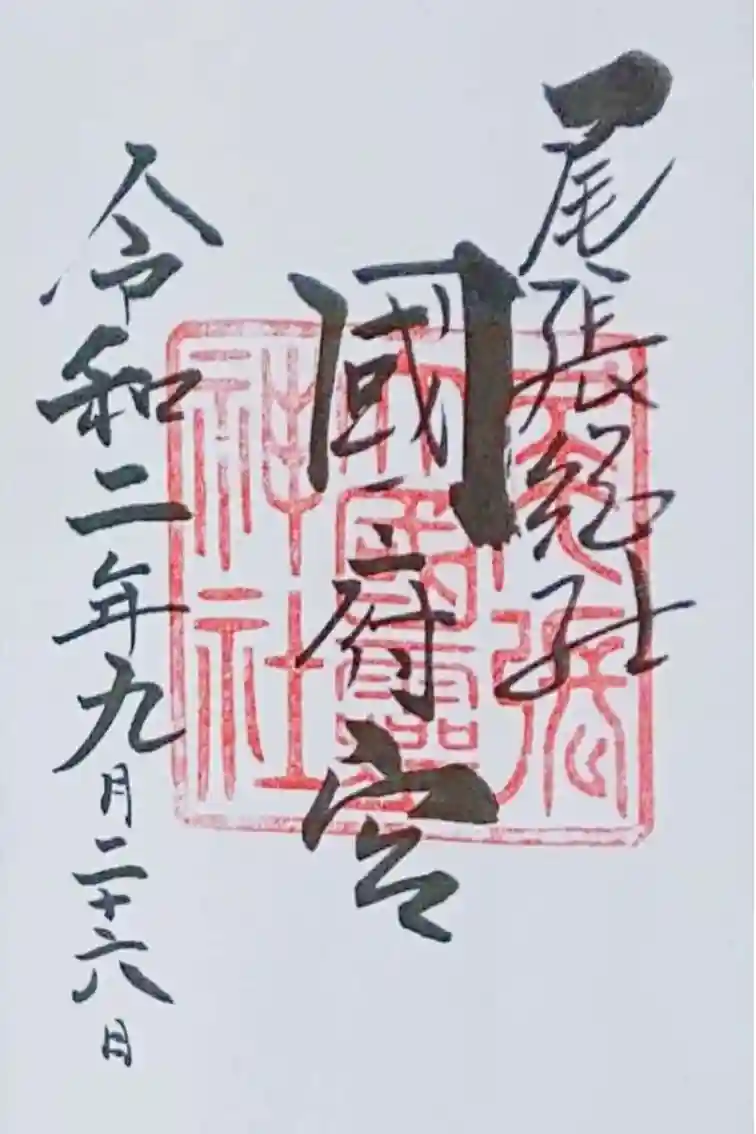 尾張総社
國府宮
令和二年九月二十六日
尾張
大國霊
神社